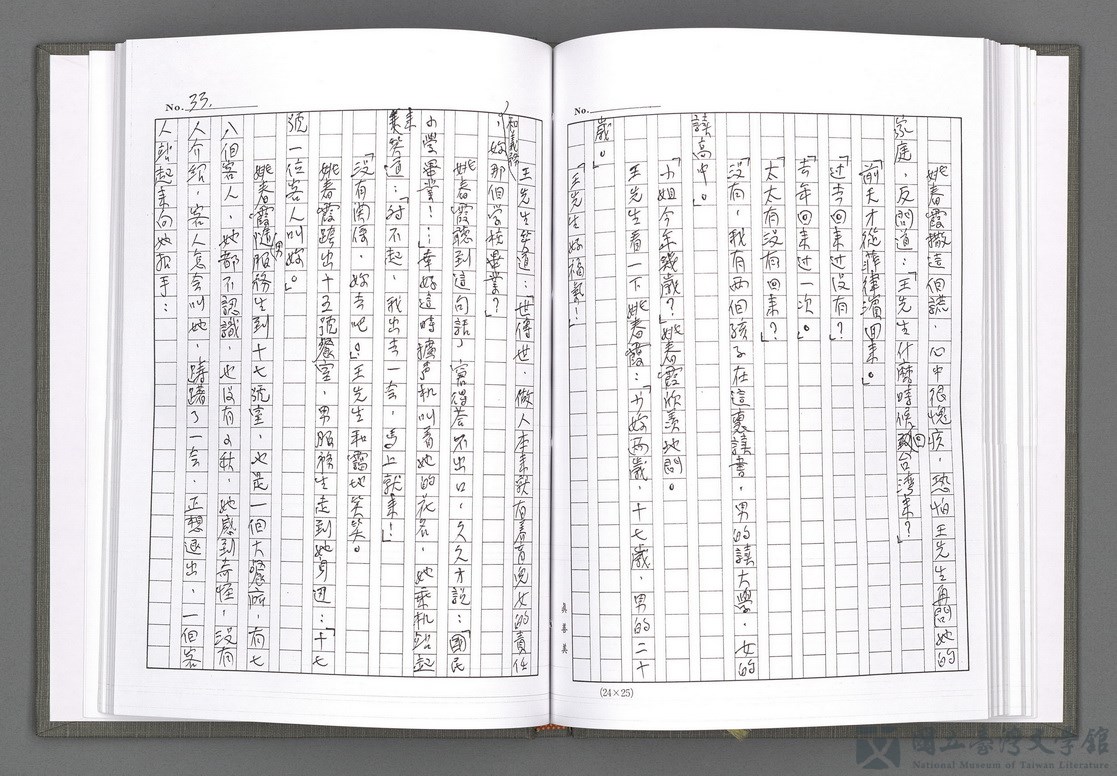 No.
姚春霞撒這個謊，心中很愧疚，恐怕王先生再問她的
家庭，反問道：「王先生什麼時候回台灣來？」
「前天才從菲律濱回來。」
「過去回來過沒有？」
「去年回來過一次。」
「太太有沒有回來？」
「沒有，我有兩個孩子在這裏讀書，男的讀大學，女的
讀高中。」
「小姐今年幾歲？」姚春霞欣羨地問。
王先生看一下姚春霞：「少妳兩歲，十七歲，男的二十
歲。」
「王先生好福氣！」
眞善美
(24×25)
No. 33.
王先生笑道：「世傳世，做人本來就有養育兒女的責任
和義務，妳那個學校畢業？」
姚春霞聽到這句話，窘得答不出口，久久才說：「國民
小學畢業！…」幸好這時擴声机叫着她的花名，她乘机站起
來笑道：「对不起，我出去一会，馬上就來！」
「沒有關係，妳去吧。」王先生和靄地笑笑。
姚春霞跨出十五號餐室，男服務生走到她身边：「十七
號一位客人叫妳。」
姚春霞隨男服務生到十七號室，也是一個大餐廳，有七
八個客人，她都不認識，也沒有 她感到奇怪，沒有
人介紹，客人怎会叫她，躊躇了一会，正想退出，一個客
人站起來向她招手：
國立臺灣文學館
National Museum of Taiwan Literature